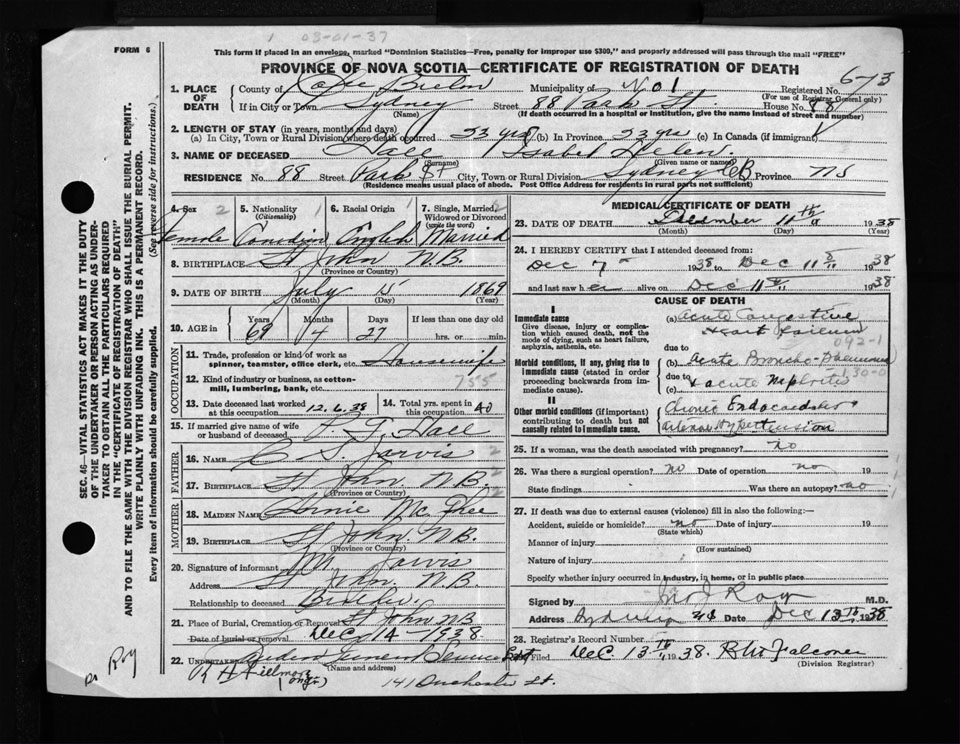 1 03-01-37
FORM 6
This form if placed in an envelope, marked "Dominion Statistics—Free, penalty for improper use $300," and properly addressed will pass through the mail "FREE"
PROVINCE OF NOVA SCOTIA—CERTIFICATE OF REGISTRATION OF DEATH
6-73
1. PLACE OF DEATH
County of Cape Breton Municipality of No 1 Registered No.
(For use of Registrar General only)
If in City or Town Sydney Street 88 Park St. House No. 88
(Name) (If death occurred in a hospital or institution, give the name instead of street and number)
2. LENGTH OF STAY (in years, months and days)
(a) In City, Town or Rural Division where death occurred 53 yrs (b) In Province 53 yrs (c) In Canada (if immigrant)
3. NAME OF DECEASED Isabel Helen.
(Surname) (Given name or names)
RESIDENCE No. 88 Street Park St City, Town or Rural Division Sydney CB Province NS
(Residence means usual place of abode. Post Office Address for residents in rural parts not sufficient)
4. Sex 2
Female
5. Nationality 1
(Citizenship)
Canadian
6. Racial Origin 1
English
7. Single, Married, 2
Widowed or Divorced
(write the word)
Married
8. BIRTHPLACE St John N.B.
(Province or Country)
9. DATE OF BIRTH July 15 1869
(Month) (Day) (Year)
10. AGE in
Years Months Days If less than one day old
69 4 27 hrs. or min.
OCCUPATION
11. Trade, profession or kind of work as
spinner, teamster, office clerk, etc. Housewife
12. Kind of industry or business, as cotton-
mill, lumbering, bank, etc. 755
13. Date deceased last worked
at this occupation 12.6.38
14. Total yrs. spent in
this occupation 40
15. If married give name of wife
or husband of deceased
FATHER
16. NAME C. S. Jarvis 2
17. BIRTHPLACE St John N.B. 2
(Province or Country)
MOTHER
18. MAIDEN NAME Annie
19. BIRTHPLACE St John. N.B.
(Province or Country)
20. Signature of informant M. Jarvis
Address St John. N.B.
Relationship to deceased Brother.
21. Place of Burial, Cremation or Removal St John NB
Date of burial or removal Dec 14 - 1938.
22. UNDERTAKER
(Name and address)
R H Fillmore
(mngr)
141 Dorchester St.
MEDICAL CERTIFICATE OF DEATH
23. DATE OF DEATH December 11th 1938
(Month) (Day) (Year)
24. I HEREBY CERTIFY that I attended deceased from:
Dec 7 1938 to Dec 11 1938
and last saw her alive on Dec 11 1938
CAUSE OF DEATH
I
Immediate cause
Give disease, injury or complica-
tion which caused death, not the
mode of dying, such as heart failure,
asphyxia, asthenia, etc.
(a) Acute Congestive
Heart Failure
092-1
due to
Morbid conditions, if any, giving rise to
immediate cause (stated in order
proceeding backwards from im-
mediate cause).
(b) Acute Broncho-Pneumonia
due to
130-0
& acute nephritis
II
Other morbid conditions (if important)
contributing to death but not
causally related to immediate cause.
(c) Chronic Endocarditis
Arterial Hypertension
25. If a woman, was the death associated with pregnancy? no
26. Was there a surgical operation? no Date of operation no 19
State findings Was there an autopsy? no
27. If death was due to external causes (violence) fill in also the following:—
Accident, suicide or homicide? no Date of injury 19
(State which)
Manner of injury
(How sustained)
Nature of injury
Specify whether injury occurred in industry, in home, or in public place
Signed by Jno J Roy M.D.
Address Sydney NS Date Dec 13th 1938
28. Registrar's Record Number
Filed Dec 13th 1938. Falconer
(Division Registrar)
SEC. 46—VITAL STATISTICS ACT MAKES IT THE DUTY
OF THE UNDERTAKER OR PERSON ACTING AS UNDER-
TAKER TO OBTAIN ALL THE PARTICULARS REQUIRED
IN THE "CERTIFICATE OF REGISTRATION OF DEATH"
AND TO FILE THE SAME WITH THE DIVISION REGISTRAR WHO SHALL ISSUE THE BURIAL PERMIT.
WRITE PLAINLY WITH UNFADING INK. THIS IS A PERMANENT RECORD.
Every item of information should be carefully supplied. (See reverse side for instructions.)
Roy